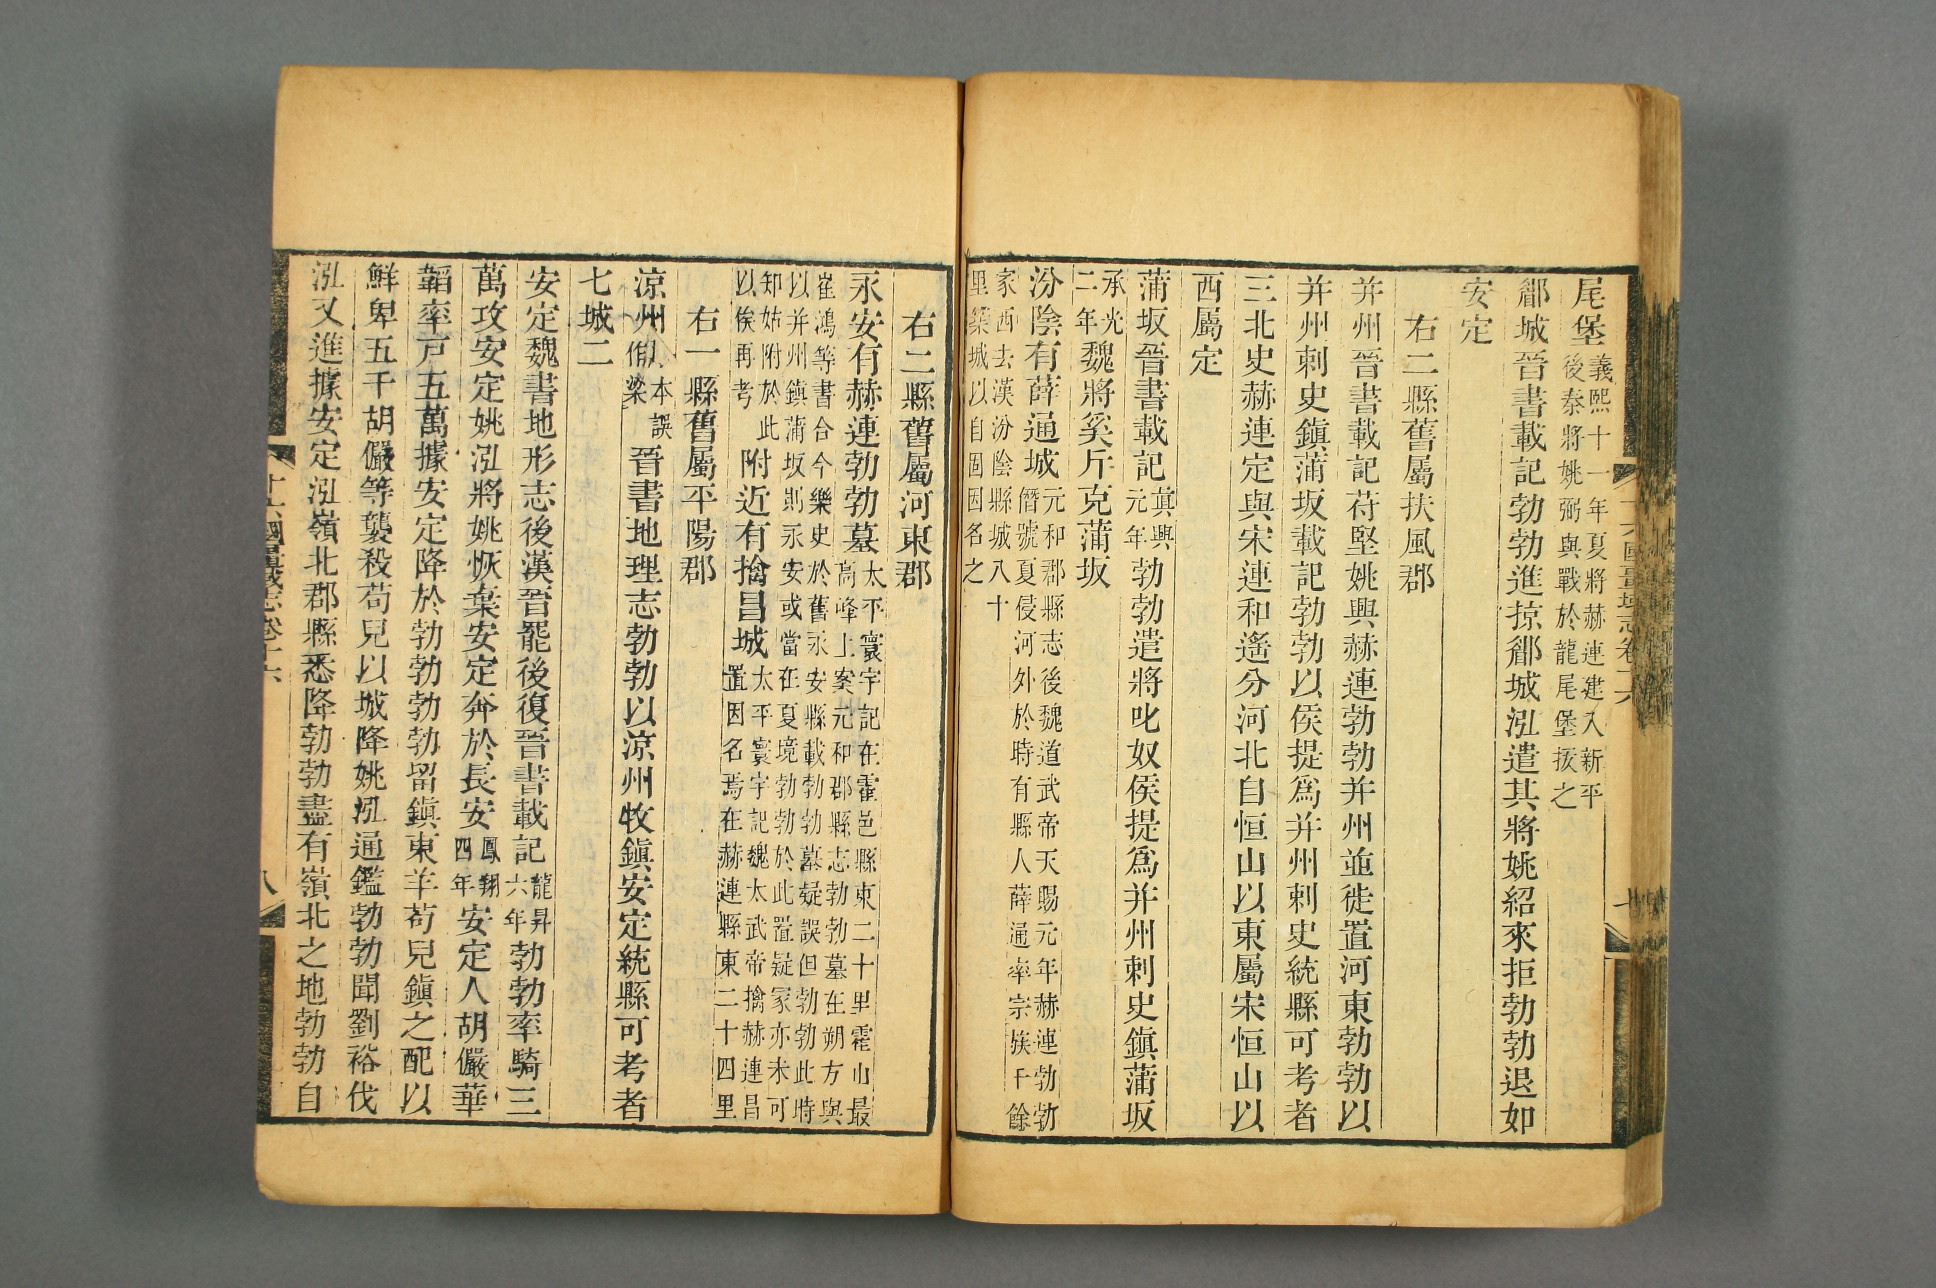 尾堡義熙十一年夏將赫連建入新平後秦將姚弼與戰於龍尾堡拔之
鄜城晉書載記勃勃進掠鄜城泓遣其將姚紹來拒勃勃退如
安定
右二縣舊屬扶風郡
并州晉書載記苻堅姚興赫連勃勃并州並徙置河東勃勃以
并州刺史鎭蒲坂載記勃勃以侯提爲并州刺史統縣可考者
三北史赫連定與宋連和遙分河北自恒山以東屬宋恒山以
西屬定
蒲坂晉書載記眞興元年勃勃遣將叱奴侯提爲并州刺史鎭蒲坂
承光二年魏將奚斤克蒲坂
汾陰有薛通城元和郡縣志後魏道武帝天賜元年赫連勃勃僭號夏侵河外於時有縣人薛通率宗族千餘
家西去漢汾陰縣城八十里築城以自固因名之
右二縣舊屬河東郡
永安有赫連勃勃墓太平寰宇記在霍邑縣東二十里霍山最高峰上案元和郡縣志勃勃墓在朔方與
崔鴻等書合今樂史於舊永安縣載勃勃墓疑誤但勃勃此時以并州鎮蒲坂則永安或當在夏境勃勃於此置疑冢亦未可
知姑附於此以俟再考附近有擒昌城太平寰宇記魏太武帝擒赫連昌置因名焉在赫連縣東二十四里
右一縣舊屬平陽郡
涼州一本誤作梁晉書地理志勃勃以涼州牧鎭安定統縣可考者
七城二
安定魏書地形志後漢晉罷後復晉書載記龍昇六年勃勃率騎三
萬攻安定姚泓將姚恢棄安定奔於長安鳳翔四年安定人胡儼華
韜率戸五萬據安定降於勃勃勃勃留鎭東羊苟兒鎭之配以
鮮卑五千胡儼等襲殺苟兒以城降姚泓遁鑑勃勃聞劉裕伐
泓又進據安定泓嶺北郡縣悉降勃勃盡有嶺北之地勃勃自
十六國疆域志卷十六
八
十六國疆域志卷十六
七